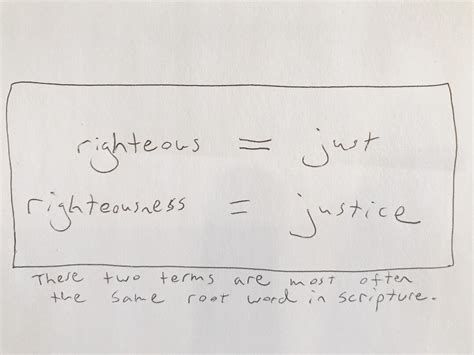 righteous = just
righteousness = justice
These two terms are most often
the same root word in scripture.